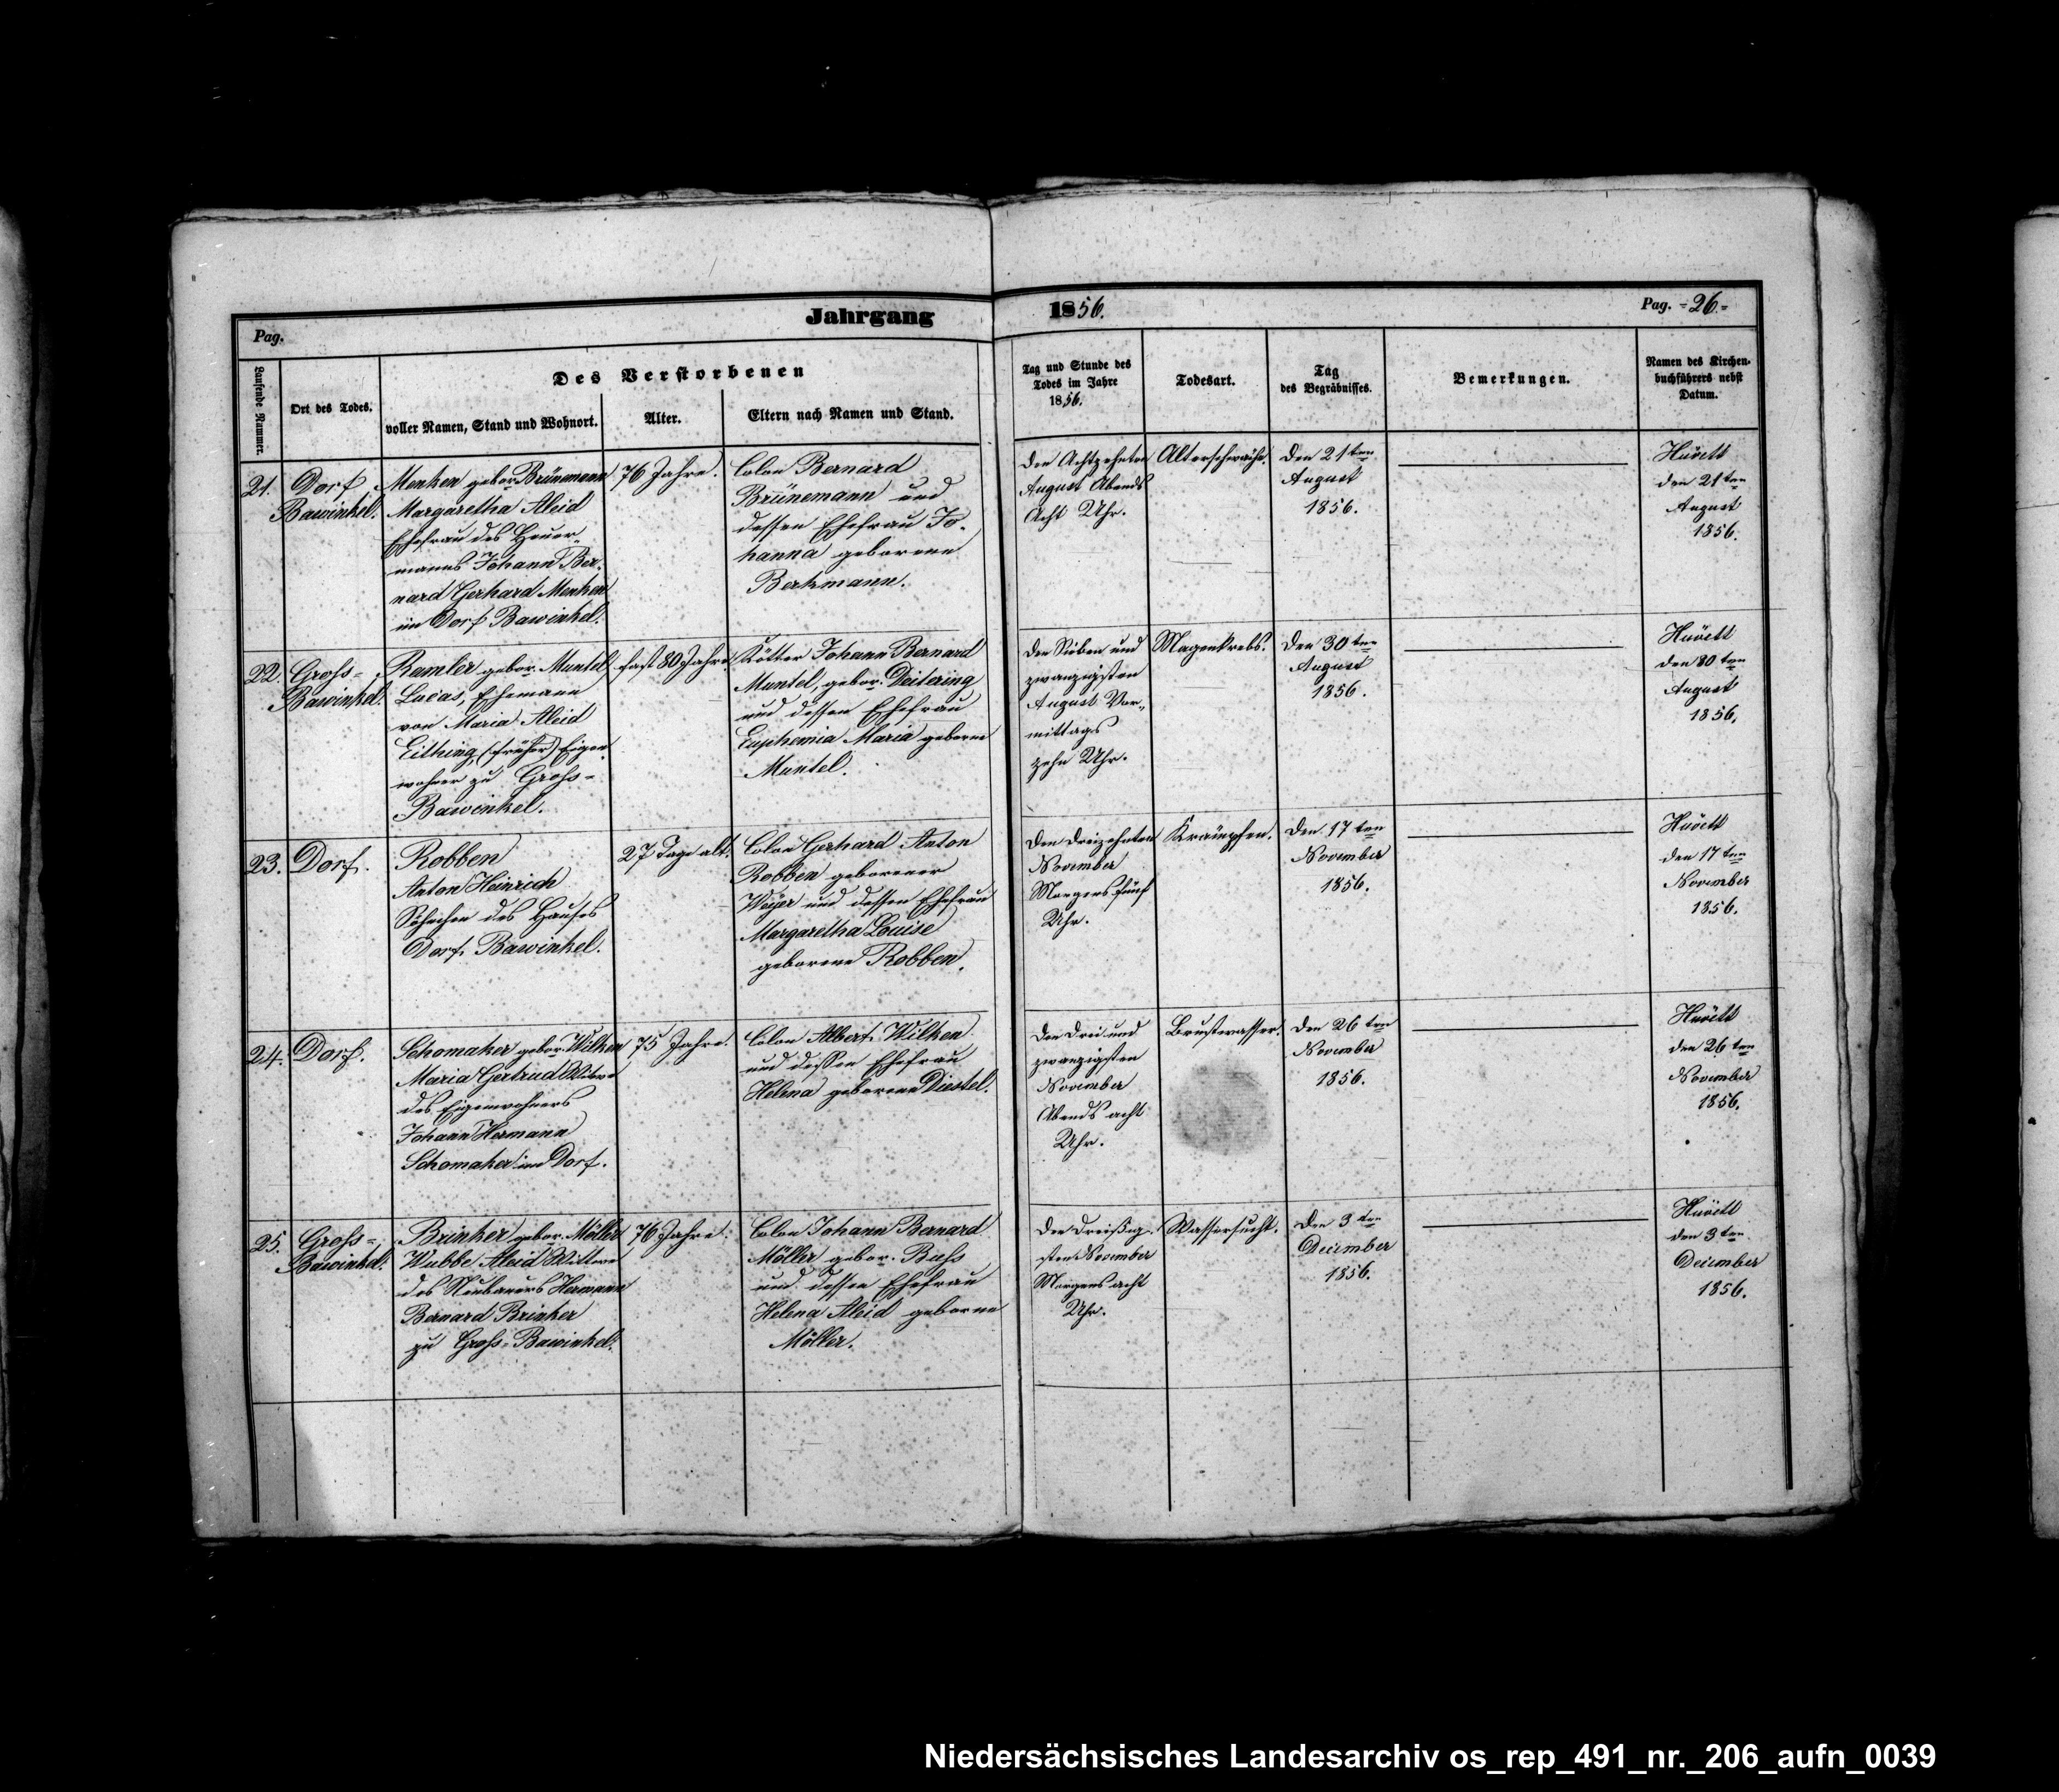 Pag.
Jahrgang 1856.
Pag. =26.=
Laufende Nummer.
Ort des Todes.
Des Verstorbenen
voller Namen, Stand und Wohnort.
Alter.
Eltern nach Namen und Stand.
Tag und Stunde des
Todes im Jahre
1856.
Todesart.
Tag
des Begräbnisses.
Bemerkungen.
Namen des Kirchen-
buchführers nebst
Datum.
21.
Dorf
Bawinkel.
Menken gebor. Brünemann
Margaretha Aleid
Ehefrau des Heuer-
manns Johann Ber-
nard Gerhard Menken
im Dorf Bawinkel.
76 Jahre.
Colon Bernard
Brünemann und
dessen Ehefrau Jo-
hanna geborene
Berkmann.
Den Achtzehnten
August Abends
Acht Uhr.
Altersschwäche.
Den 21ten
August
1856.
Hüvett
den 21ten
August
1856.
22.
Gross=
Bawinkel.
Ramler gebor. Muntel
Lucas, Ehemann
von Maria Aleid
Eilhing, (früher) Eigen-
wohner zu Gross=
Bawinkel.
fast 80 Jahre.
Kötter Johann Bernard
Muntel, gebor. Deitering
und dessen Ehefrau
Euphemia Maria geborne
Muntel.
Den Sieben und
zwanzigsten
August Vor-
mittags
zehn Uhr.
Magenkrebs.
Den 30ten
August
1856.
Hüvett
den 30ten
August
1856.
23.
Dorf.
Robben
Anton Heinrich
Söhnchen des Hauses
Dorf Bawinkel.
27 Tage alt.
Colon Gerhard Anton
Robben geborener
Weyer und dessen Ehefrau
Margaretha Louise
geborene Robben.
Den Dreizehnten
November
Morgens fünf
Uhr.
Krämpfen.
Den 17ten
November
1856.
Hüvett
den 17ten
November
1856.
24.
Dorf.
Schomaker gebor. Wilken
Maria Gertrud Witwe
des Eigenwohners
Johann Hermann
Schomaker im Dorf.
75 Jahre.
Colon Albert Wilken
und dessen Ehefrau
Helena geborene Diestel.
Den Drei und
zwanzigsten
November
Abends acht
Uhr.
Brustwasser.
Den 26ten
November
1856.
Hüvett
den 26ten
November
1856.
25.
Gross=
Bawinkel.
Brinker gebor. Möller
Wubbe Aleid Wittwe
des Neubauers Hermann
Bernard Brinker
zu Gross=Bawinkel.
76 Jahre.
Colon Johann Bernard
Möller gebor. Buss
und dessen Ehefrau
Helena Aleid geborne
Möller.
Den Dreißig-
sten November
Morgens acht
Uhr.
Wassersucht.
Den 3ten
December
1856.
Hüvett
den 3ten
December
1856.
Niedersächsisches Landesarchiv os_rep_491_nr._206_aufn_0039